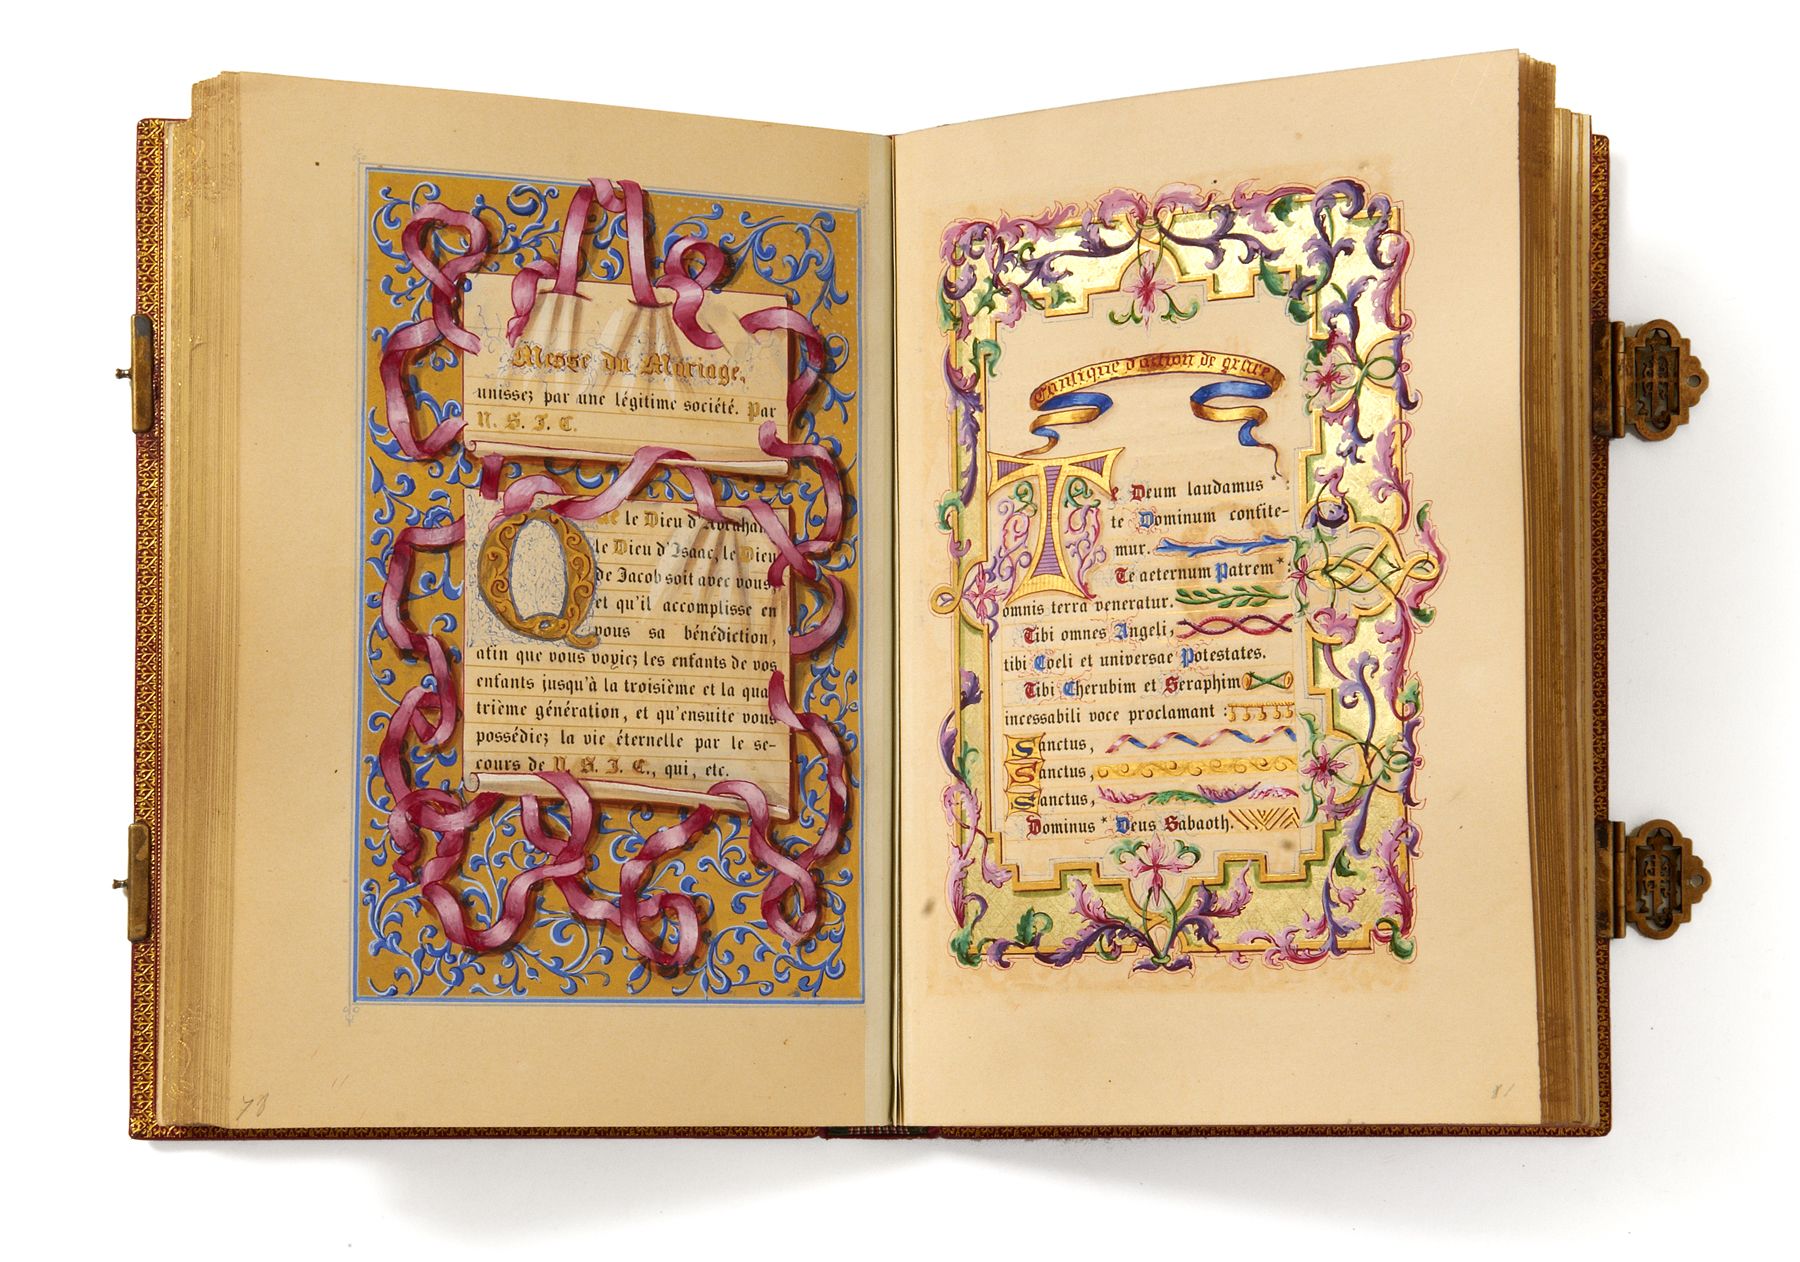 Messe du Mariage.
unissez par une légitime société. Par
N. S. J. C.
Que le Dieu d'Abraham
le Dieu d'Isaac, le Dieu
de Jacob soit avec vous
et qu'il accomplisse en
vous sa bénédiction,
afin que vous voyiez les enfants de vos
enfants jusqu'à la troisième et la qua
trième génération, et qu'ensuite vous
possédiez la vie éternelle par le se-
cours de N. S. J. C., qui, etc.
78
Cantique d'action de grace
Te Deum laudamus * :
te Dominum confite-
mur.
Te aeternum Patrem * :
omnis terra veneratur.
Tibi omnes Angeli,
tibi Coeli et universae Potestates.
Tibi Cherubim et Seraphim
incessabili voce proclamant :
Sanctus,
Sanctus,
Sanctus,
Dominus * Deus Sabaoth.
81